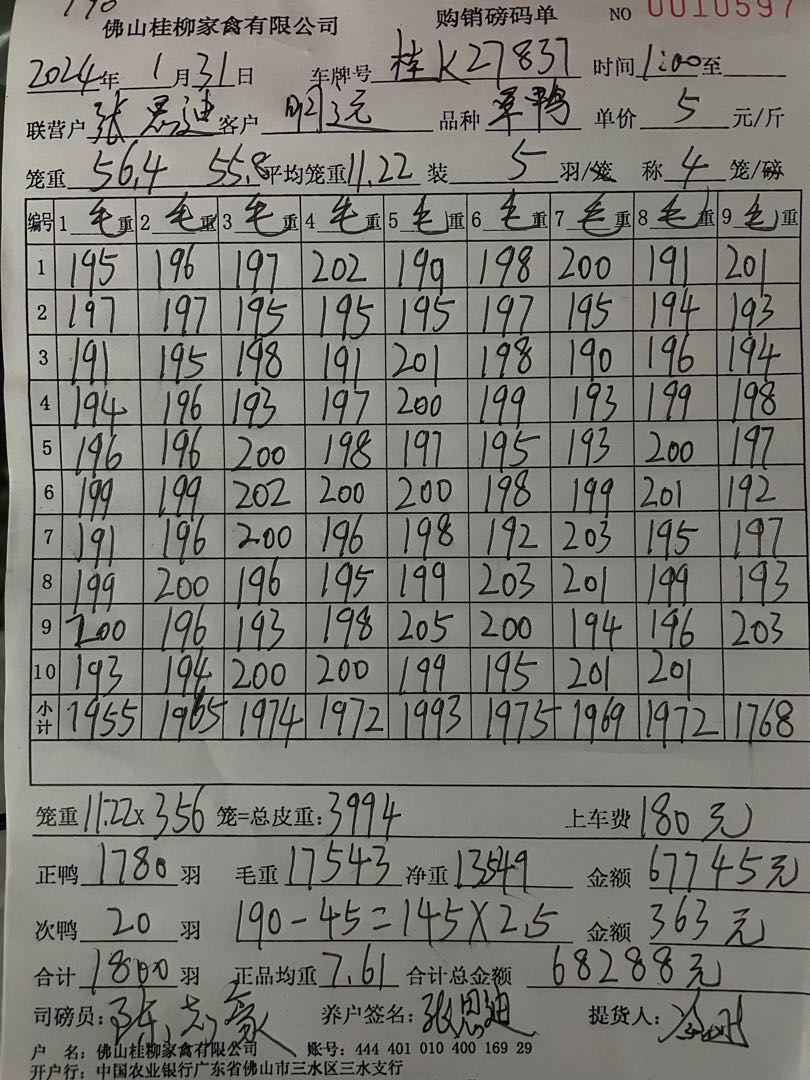 佛山桂柳家禽有限公司 购销磅码单 NO 0010597
2024年 1月31日 车牌号 桂K27837 时间 1:00至
联营户 张思迪 客户 明远 品种 草鸭 单价 5 元/斤
笼重 56.4 55.8 平均笼重 11.22 装 5 羽/笼 称 4 笼/磅
编号 1 毛重 2 毛重 3 毛重 4 毛重 5 毛重 6 毛重 7 毛重 8 毛重 9 毛重
1 195 196 197 202 199 198 200 191 201
2 197 197 195 195 195 197 195 194 193
3 191 195 198 191 201 198 190 196 194
4 194 196 193 197 200 199 193 199 198
5 196 196 200 198 197 195 193 200 197
6 199 199 202 200 200 198 199 201 192
7 191 196 200 196 198 192 203 195 197
8 199 200 196 195 199 203 201 199 193
9 200 196 193 198 205 200 194 196 203
10 193 194 200 200 199 195 201 201
小计 1955 1965 1974 1972 1993 1975 1969 1972 1768
笼重 11.22x 356 笼=总皮重: 3994 上车费 180元
正鸭 1780 羽 毛重 17543 净重 13549 金额 67745元
次鸭 20 羽 190-45=145X2.5 金额 363元
合计 1800 羽 正品均重 7.61 合计总金额 68288元
司磅员: 养户签名: 张思迪 提货人:
户 名: 佛山桂柳家禽有限公司 账号: 444 401 010 400 169 29
开户行: 中国农业银行广东省佛山市三水区三水支行